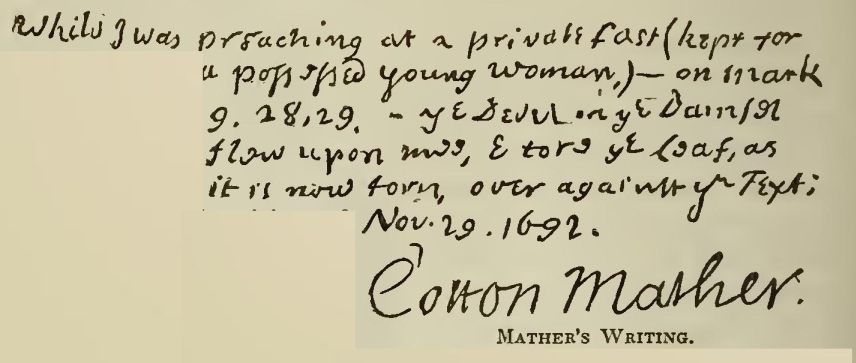 While I was preaching at a private fast (kept for
a possessed young woman,) — on Mark
9. 28, 29. - ye Devil in ye Damsel
flew upon mee, & tore ye leaf, as
it is now torn, over against ye Text;
Nov. 29. 1692.
Cotton Mather.
MATHER'S WRITING.